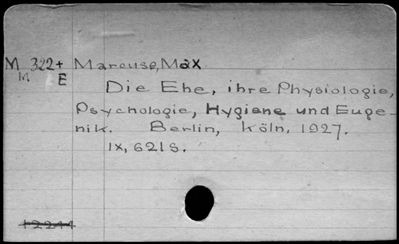 M 322+ Marcuse, Max
M E
Die Ehe, ihre Physiologie,
Psychologie, Hygiene und Euge-
nik. Berlin, Köln, 1927.
IX, 621 S.